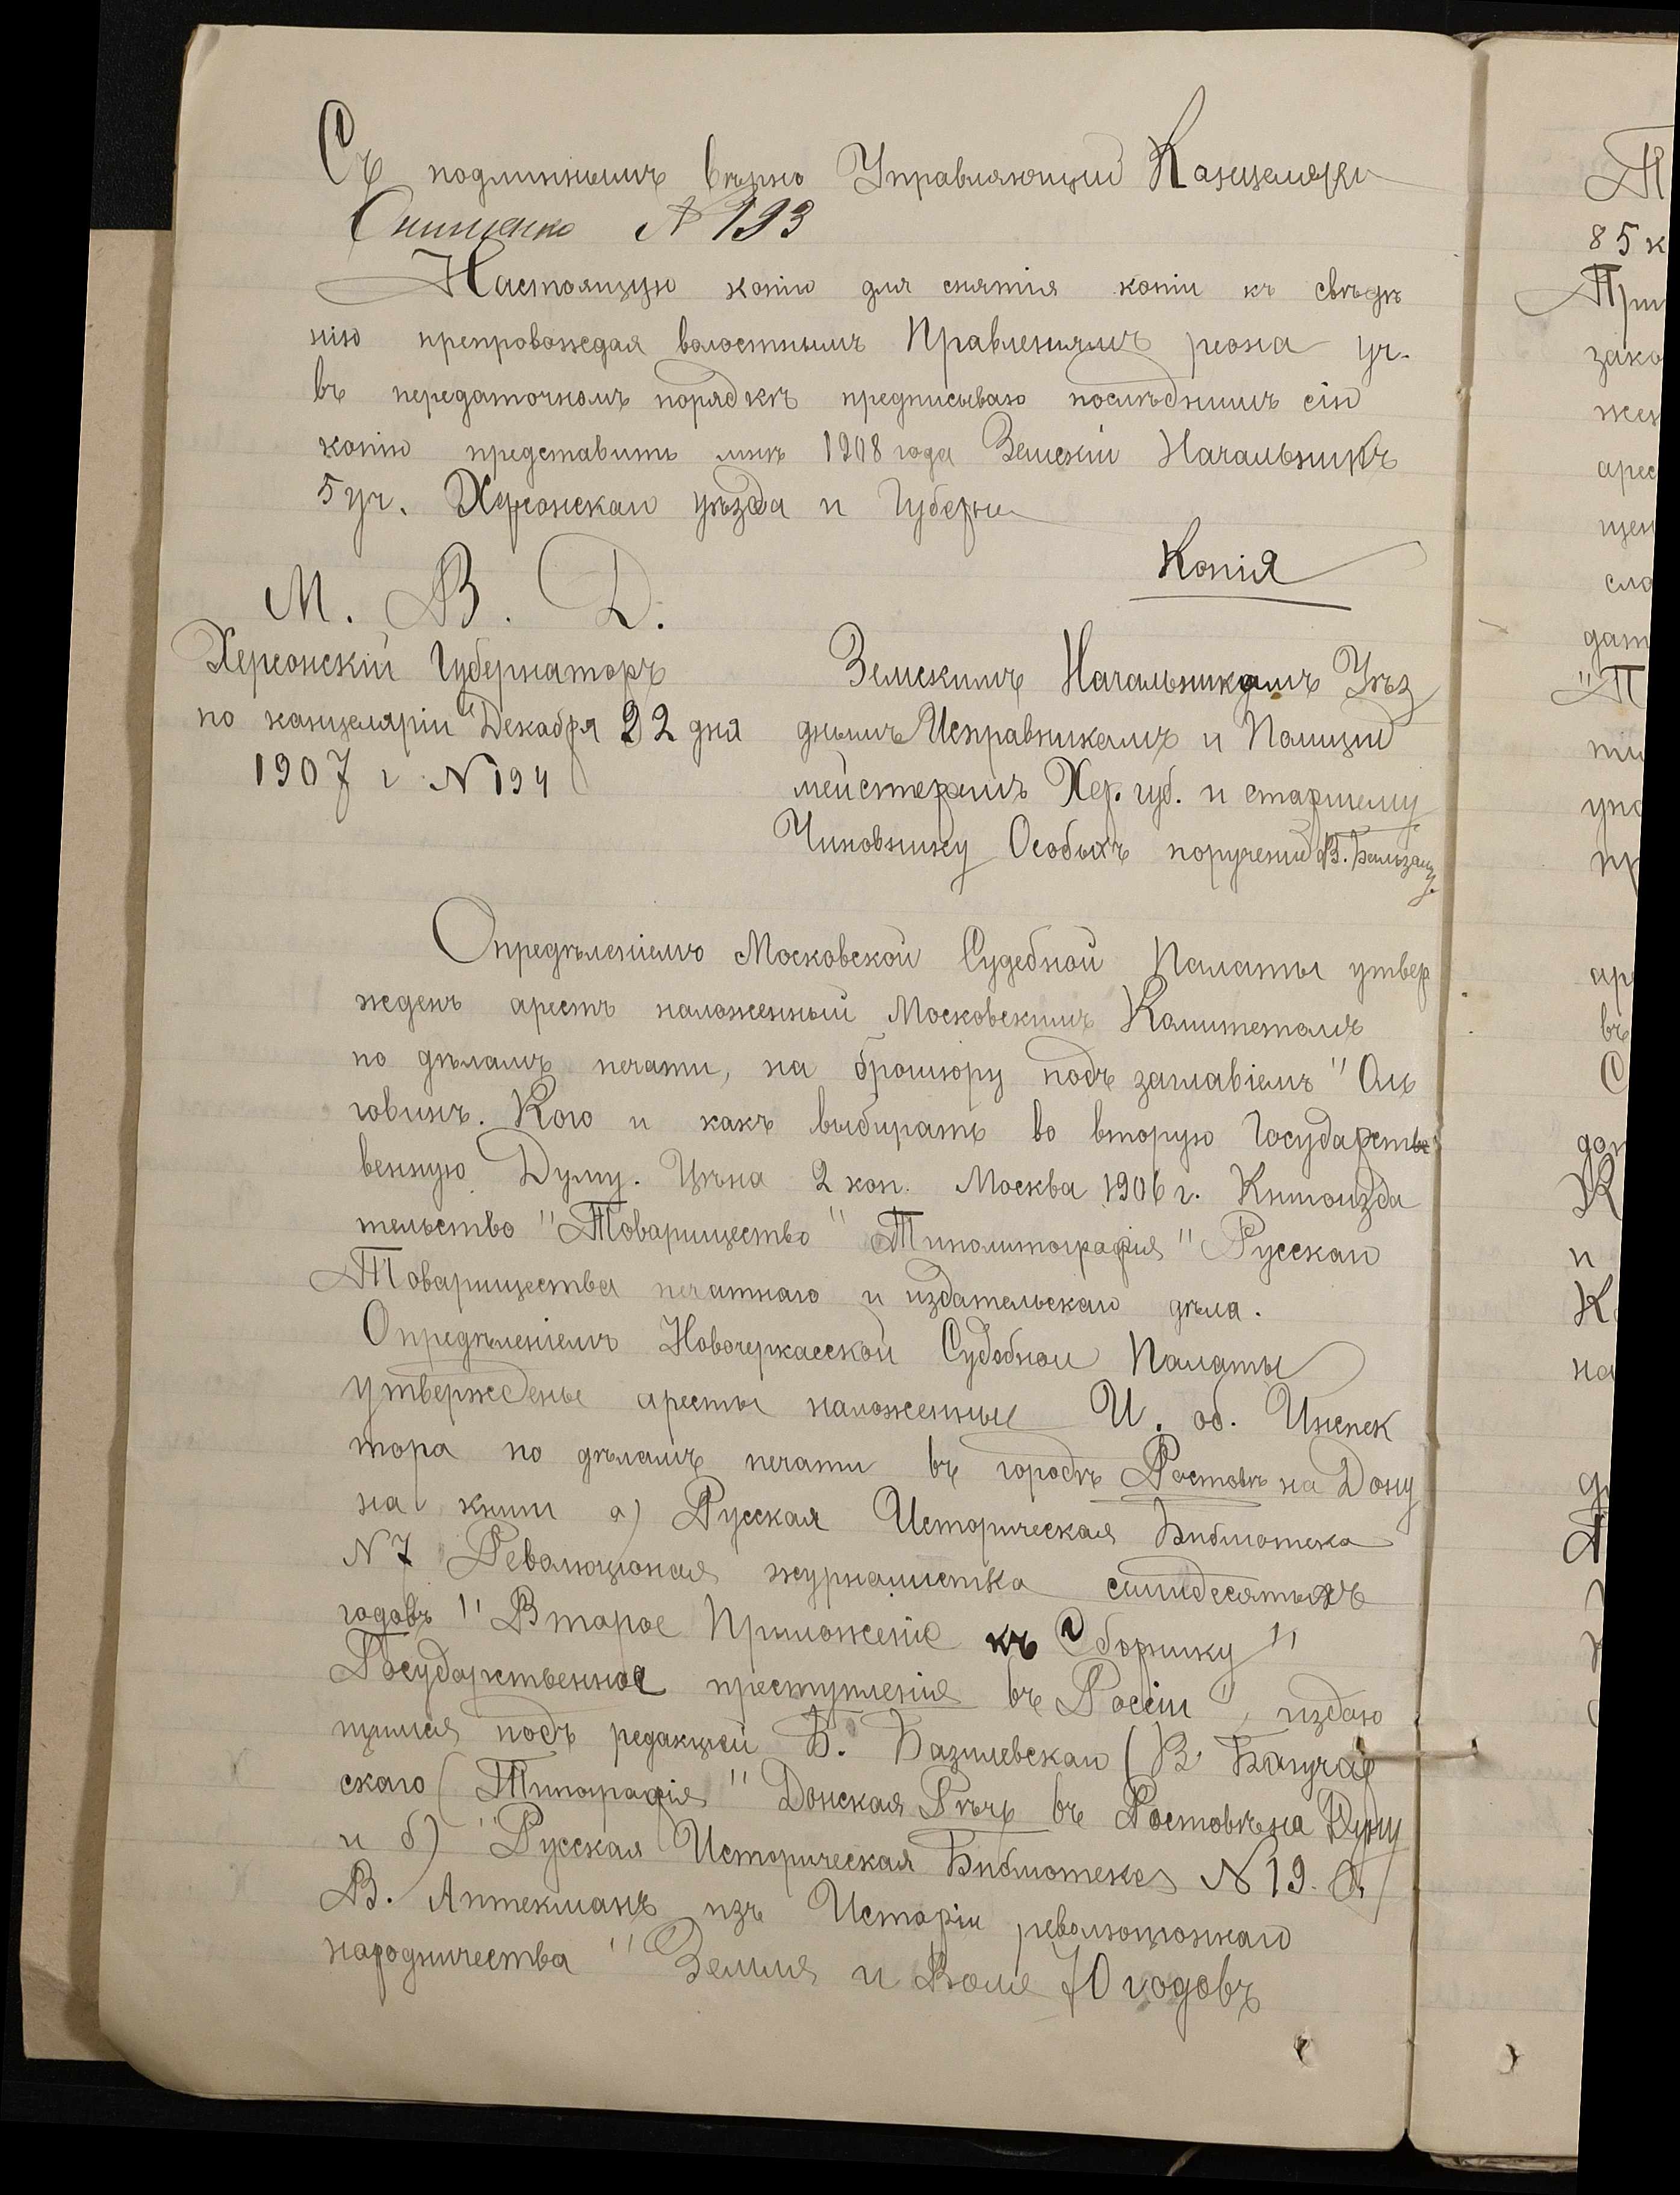 Съ подлиннымъ вѣрно Управляющій Канцеляріи
Онищенко № 193
Настоящую копію для снятія копіи къ свѣдѣ
нію препровождая волостнымъ Правленіямъ реона уч.
въ передаточномъ порядкѣ предписываю послѣднимъ сію
копію представить мнѣ 1908 года Земскій Начальникъ
5 уч. Херсонскаго уѣзда и Губерніи
Копія
М. В. Д.
Херсонскій Губернаторъ
по канцеляріи Декабря 22 дня
1907 г № 194
Земскимъ Начальникамъ Уѣз
днымъ Исправникамъ и Полицій
мейстерамъ Хер. губ. и старшему
Чиновнику Особыхъ порученій В.
Опредѣленіемъ Московской Судебной Палаты утвер
жденъ арестъ наложенный Московскимъ Комитетомъ
по дѣламъ печати, на брошюру подъ заглавіемъ "Оль
говинъ. Кого и какъ выбирать во вторую Государств
венную Думу. Цѣна 2 коп. Москва 1906 г. Книгоизда
тельство "Товарищество" Типолитографія "Русскаго
Товарищества печатнаго и издательскаго дѣла.
Опредѣленіемъ Новочеркасской Судебной Палаты
утверждены аресты наложенные И. об. Инспек
тора по дѣламъ печати въ городѣ Ростовѣ на Дону
на книги а) Русская Историческая Библіотека
№ 7 Революціоная журналистка семидесятыхъ
годовъ " Второе Приложеніе къ Сборнику "
Государственное преступленія въ Россіи", издаю
щимся подъ редакціей Б. Базилевскаго (В Богучар
скаго ( Типографія " Донская Рѣчь въ Ростовѣ на Дону
и б) "Русская Историческая Библіотека № 19. О.
В. Аптекманъ изъ Исторіи революціоннаго
народничества " Земля и Воля 70 годовъ